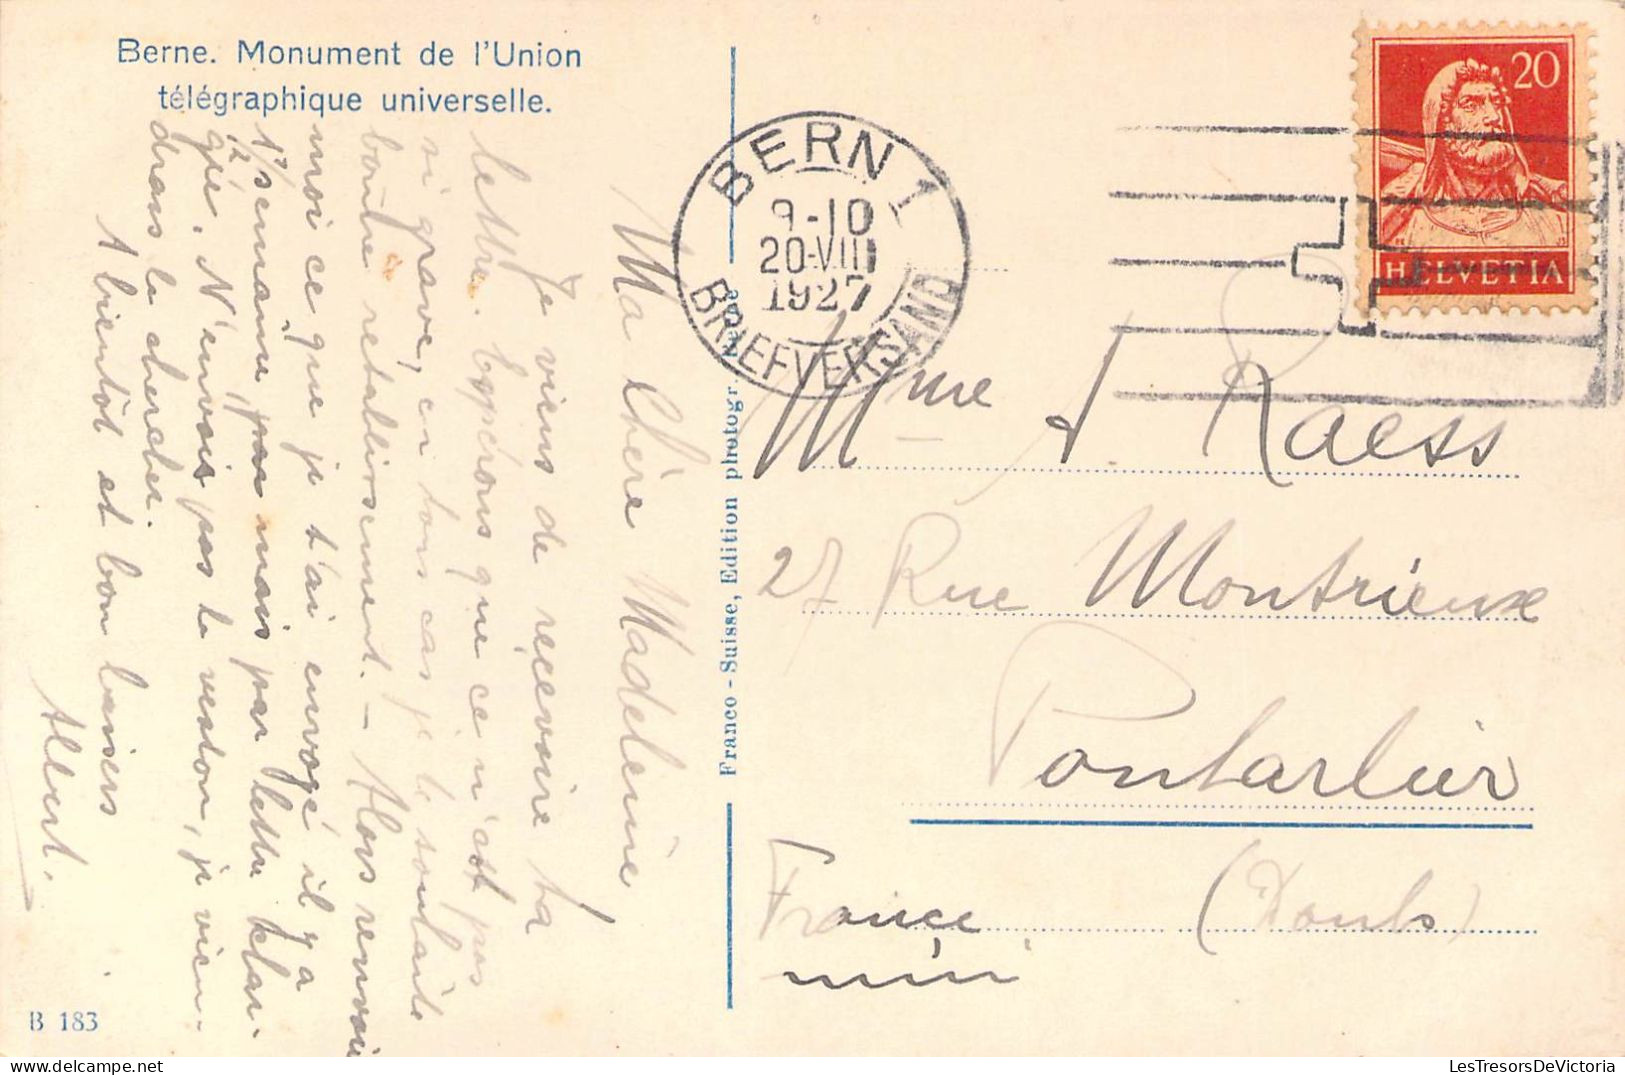 Berne. Monument de l'Union
télégraphique universelle.
Ma Chère Madeleine
Je viens de recevoir ta
lettre. Espérons que ce n'est pas
si grave, en tous cas je te souhaite
bonne rétablissement. - Alors renvoie
moi ce que je t'ai envoyé il y a
1½ semaine, pas mais par lettre
gée. N'envoie pas le veston, je vien-
drais le chercher.
A bientôt et bon baisers
Albert.
B 183
Franco-Suisse, Edition photogr.
BERN 1
9-10
20·VIII
1927
BRIEFVERSAND
20
HELVETIA
Mme J Raess
27 Rue Montrieux
Pontarlier
(Doubs)
France
LesTresorsDeVictoria